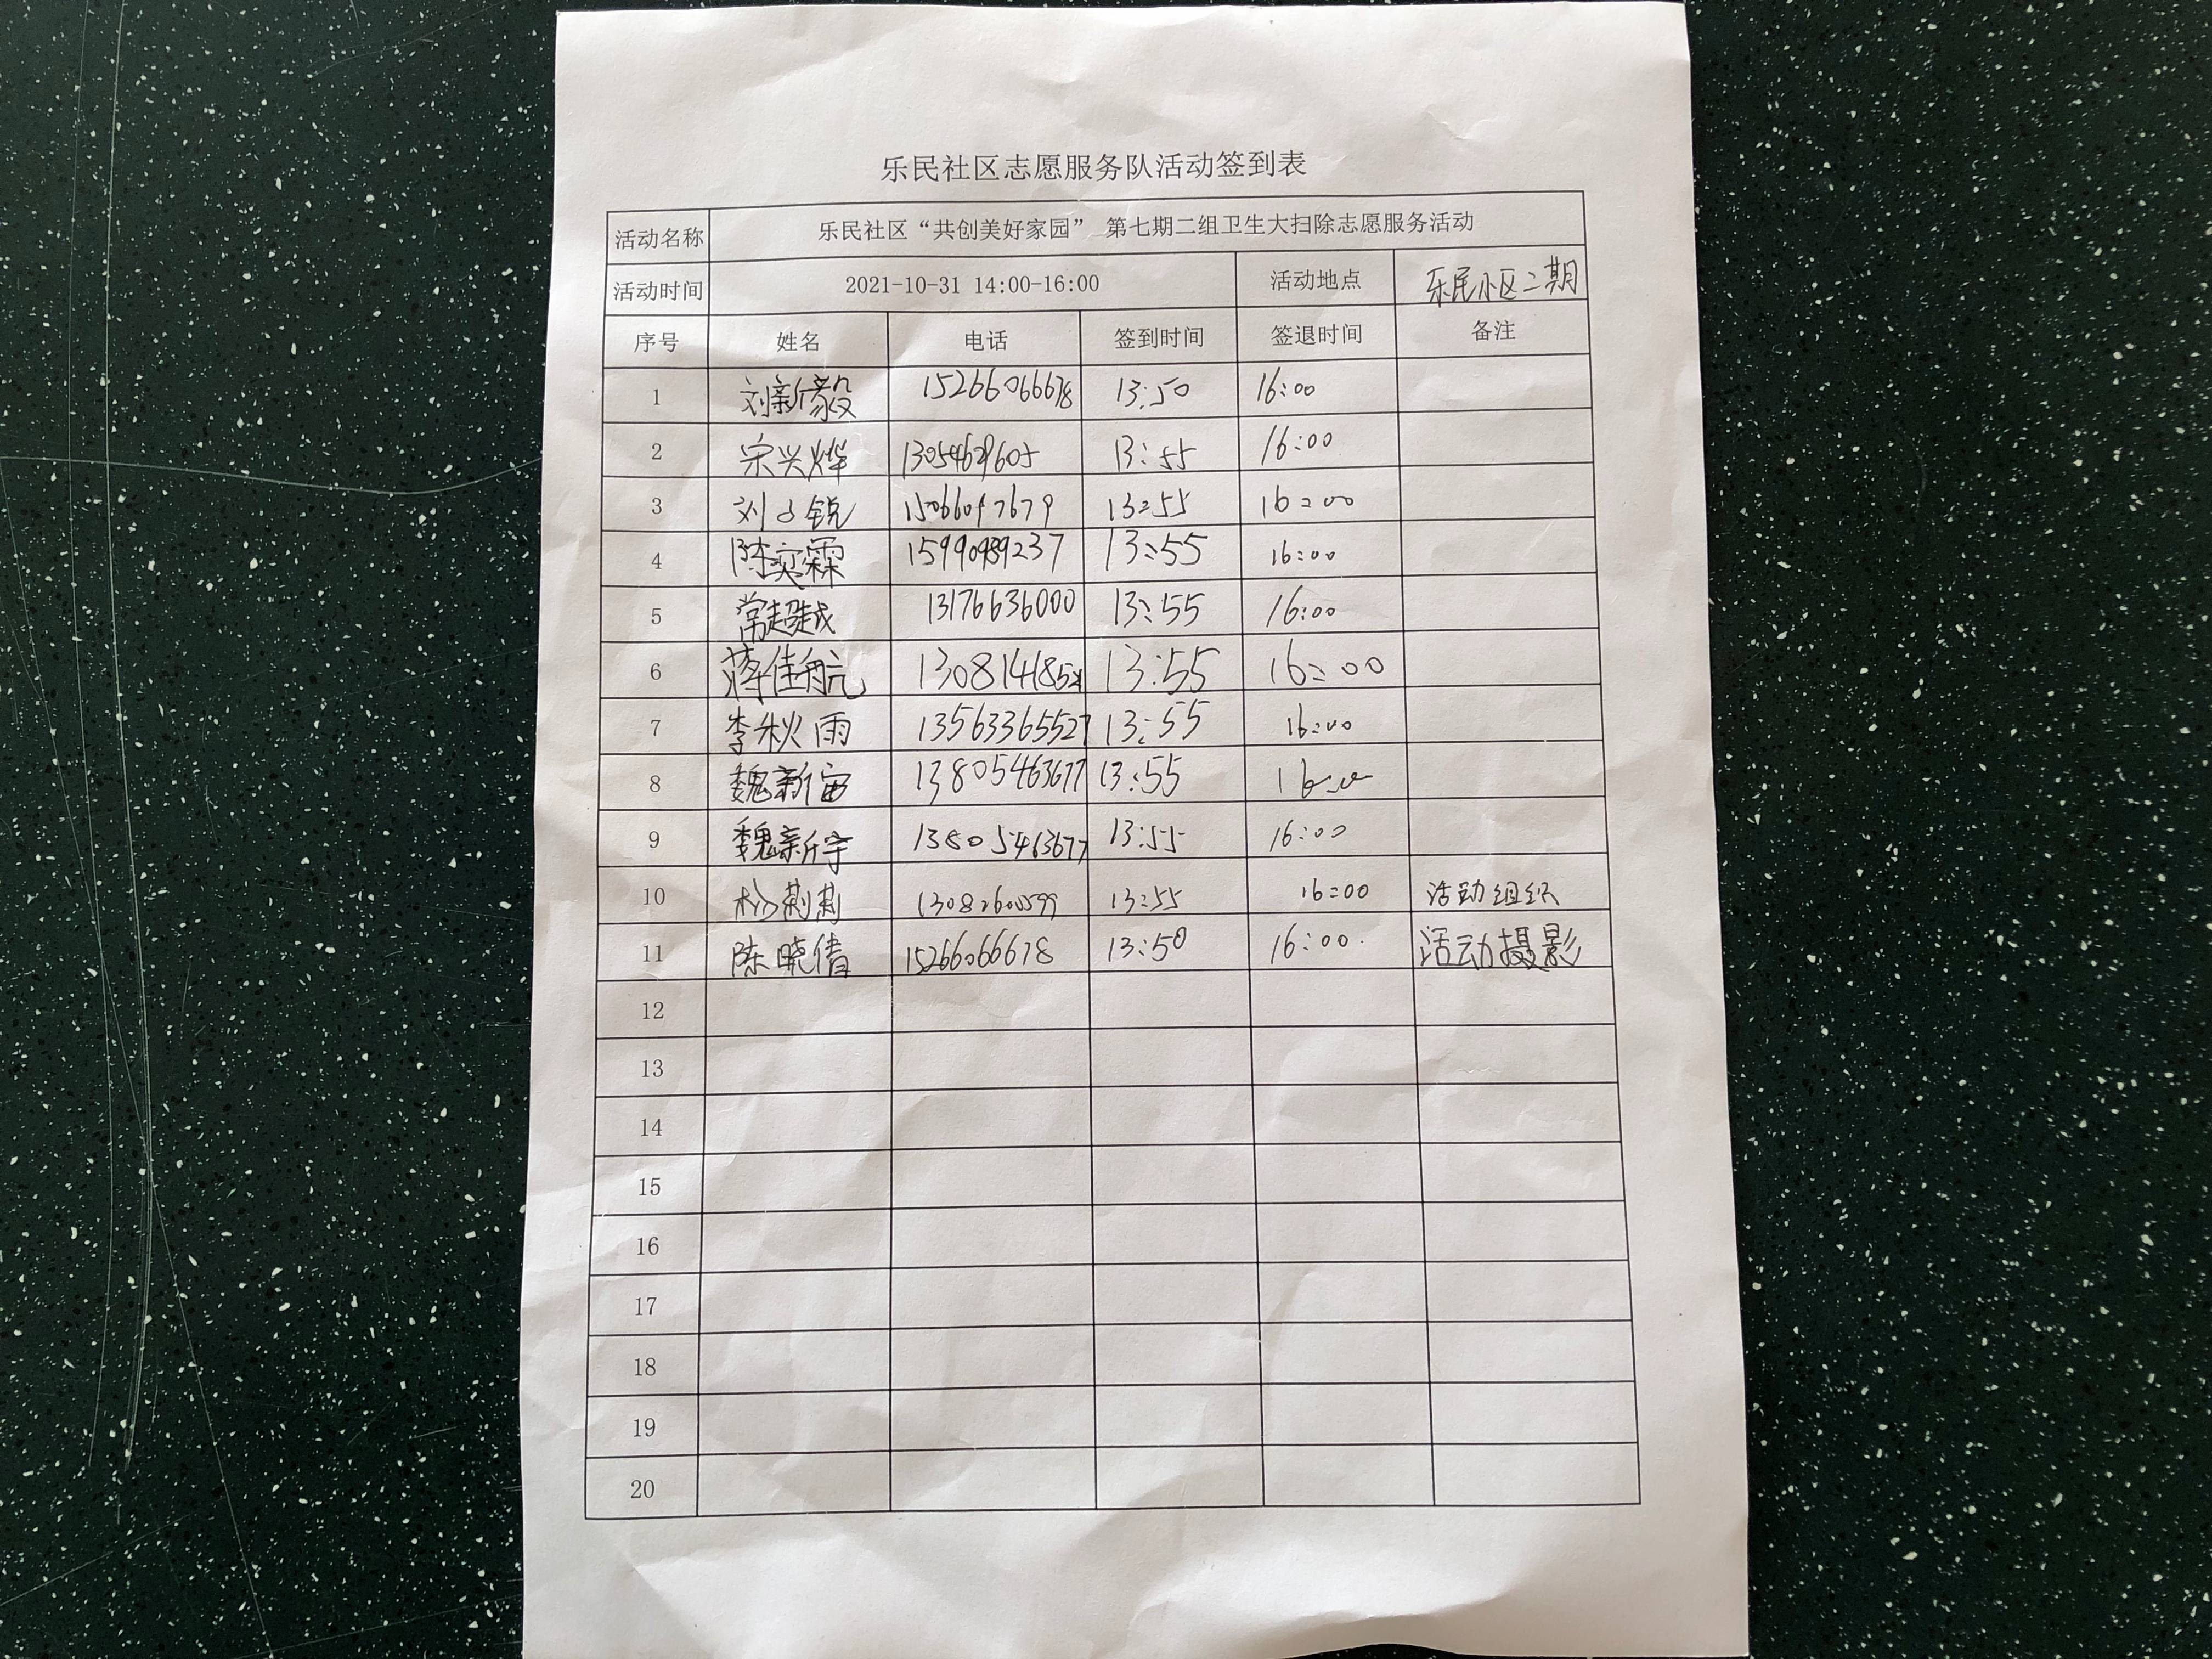 乐民社区志愿服务队活动签到表
活动名称 乐民社区“共创美好家园” 第七期二组卫生大扫除志愿服务活动
活动时间 2021-10-31 14:00-16:00 活动地点 乐民小区二期
序号 姓名 电话 签到时间 签退时间 备注
1 刘新毅 15266066678 13:50 16:00
2 宋兴烨 13054629605 13:55 16:00
3 刘子锐 13:55 16:00
4 陈奕霖 15990989237 13:55 16:00
5 常超越 13176636000 13:55 16:00
6 蒋佳航 13:55 16:00
7 李秋雨 13563365527 13:55 16:00
8 魏新宙 13805463677 13:55 16:00
9 魏新宇 13805463677 13:55 16:00
10 莉莉 13:55 16:00 活动组织
11 陈晓倩 15266066678 13:50 16:00 活动摄影
12
13
14
15
16
17
18
19
20